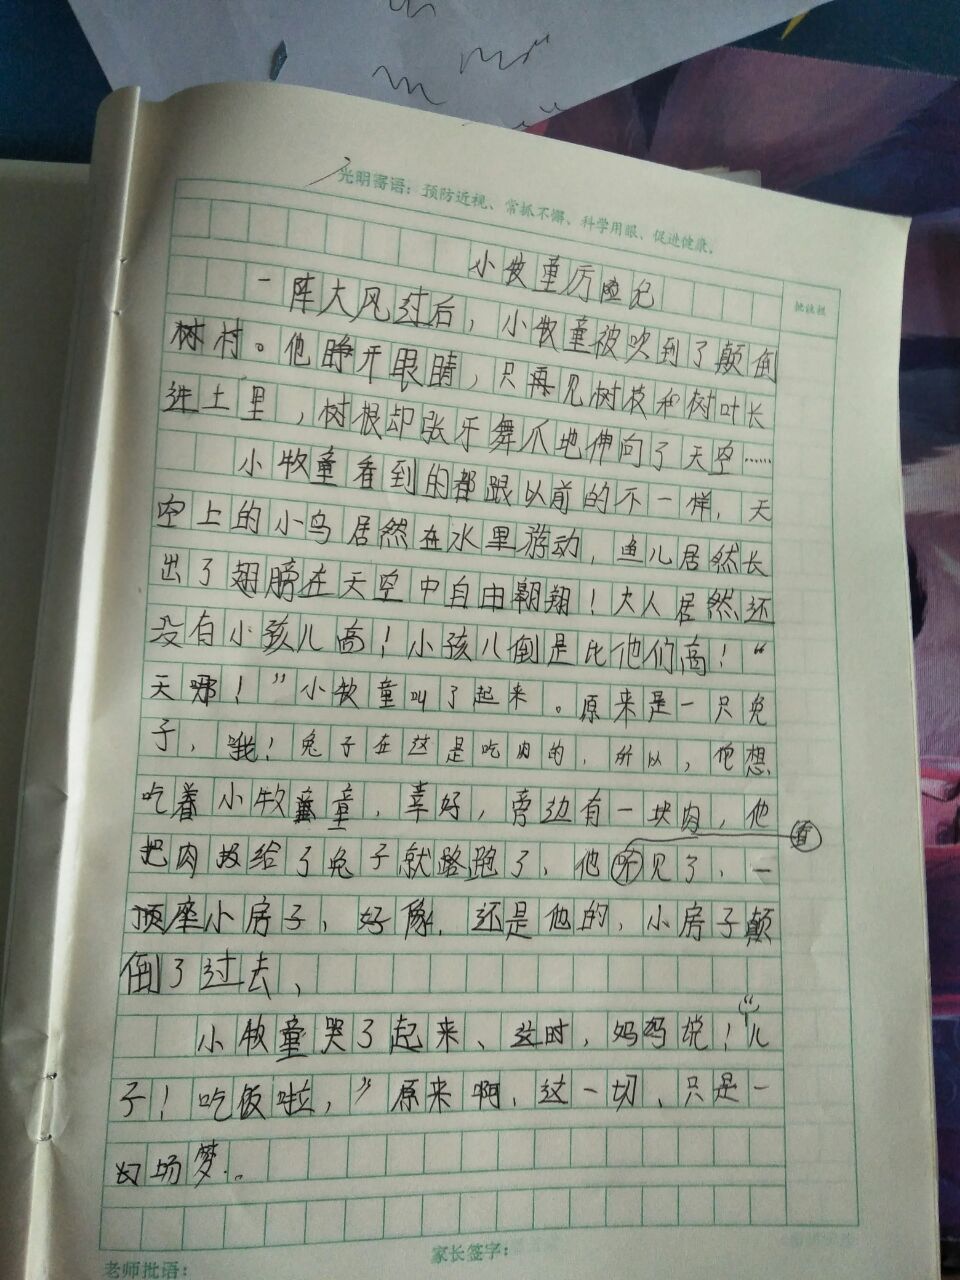 光明寄语：预防近视、常抓不懈、科学用眼、促进健康。
小牧童历险记
批注栏
一阵大风过后，小牧童被吹到了颠倒
树村。他睁开眼睛，只再见树枝和树叶长
进土里，树根却张牙舞爪地伸向了天空……
小牧童看到的都跟以前的不一样，天
空上的小鸟居然在水里游动，鱼儿居然长
出了翅膀在天空中自由翱翔！大人居然还
没有小孩儿高！小孩儿倒是比他们高！“
天哪！”小牧童叫了起来。原来是一只兔
子，哦！兔子在这是吃肉的，所以，他想
吃着小牧童，幸好，旁边有一块肉，他
把肉扔给了兔子就跑了，他看见了，一
座小房子，好像，还是他的，小房子颠
倒了过去、
小牧童哭了起来、这时，妈妈说！“儿
子！吃饭啦，”原来啊，这一切、只是一
场梦。
老师批语：
家长签字：